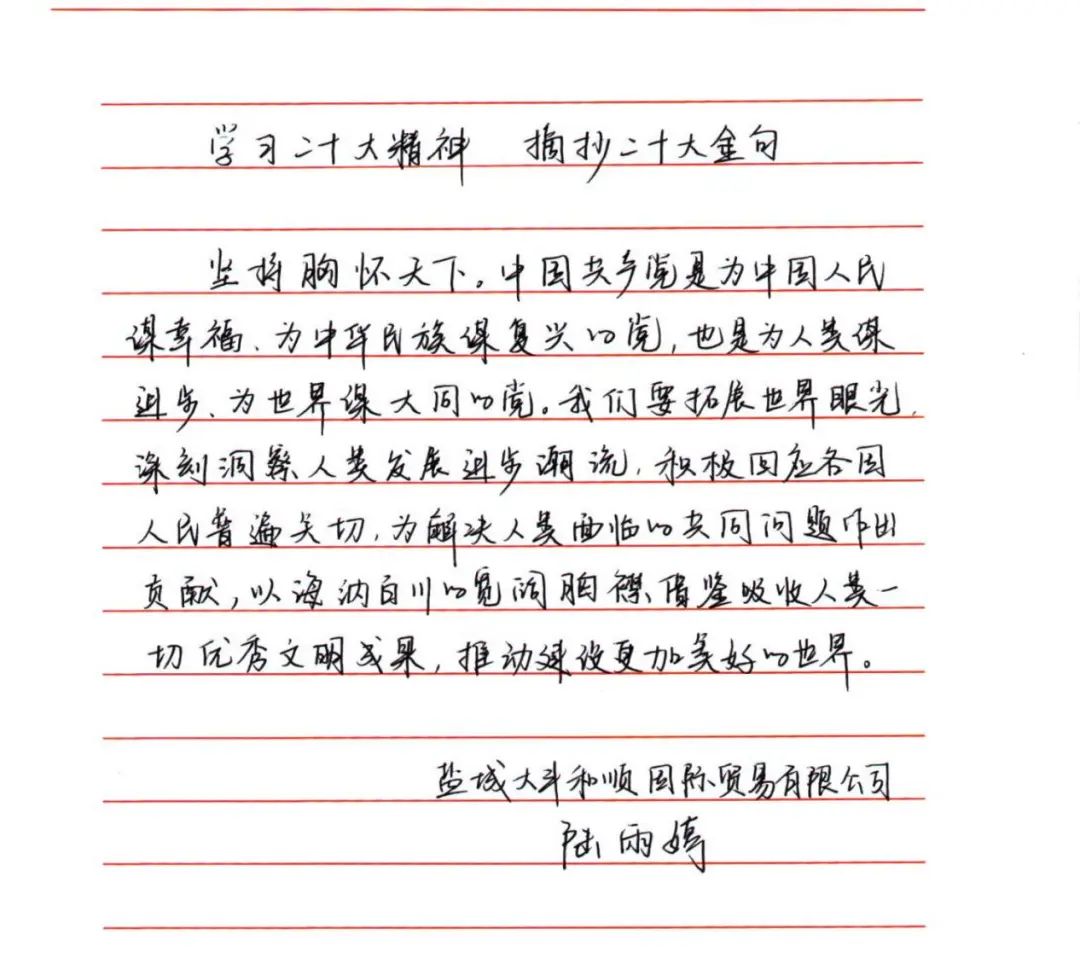 学习二十大精神 摘抄二十大金句
坚持胸怀天下。中国共产党是为中国人民
谋幸福、为中华民族谋复兴的党,也是为人类谋
进步、为世界谋大同的党。我们要拓展世界眼光,
深刻洞察人类发展进步潮流,积极回应各国
人民普遍关切,为解决人类面临的共同问题作出
贡献,以海纳百川的宽阔胸襟借鉴吸收人类一
切优秀文明成果,推动建设更加美好的世界。
盐城大斗和顺国际贸易有限公司
陆雨婷